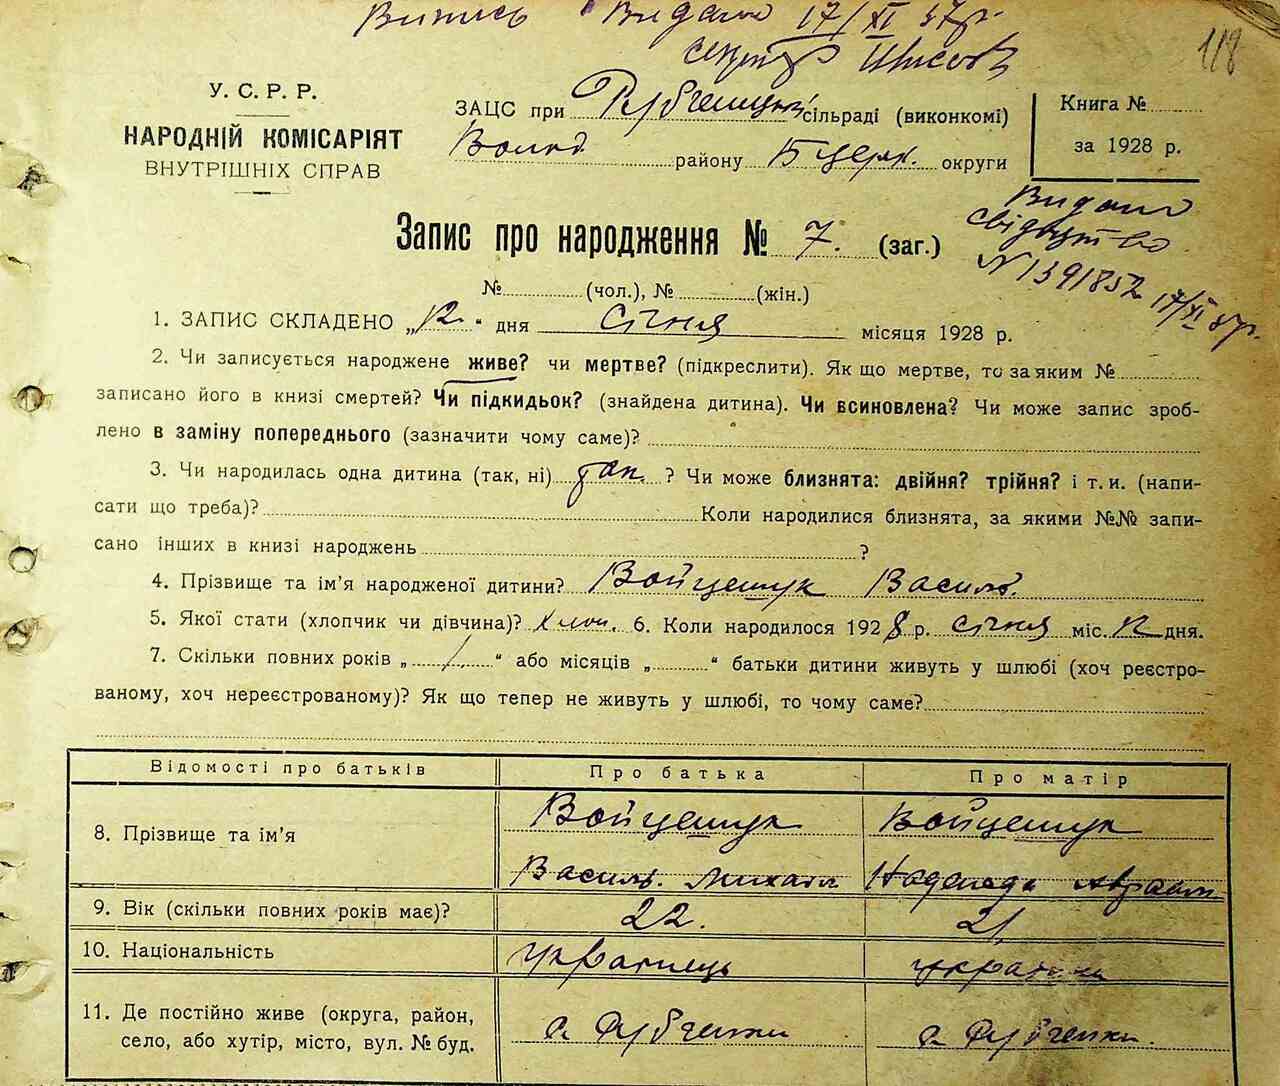 Випись Видано 17/XI 37р.
118
У. С. Р. Р.
НАРОДНІЙ КОМІСАРІЯТ
ВНУТРІШНІХ СПРАВ
ЗАЦС при сільраді (виконкомі)
Волод району Б церк. округи
Книга №
за 1928 р.
Видано
свідоцтво
N 1391852 17/XI 37р.
Запис про народження № 7. (заг.)
№ (чол.), № (жін.)
1. ЗАПИС СКЛАДЕНО „12“ дня Січня місяця 1928 р.
2. Чи записується народжене живе? чи мертве? (підкреслити). Як що мертве, то за яким №
записано його в книзі смертей? Чи підкидьок? (знайдена дитина). Чи всиновлена? Чи може запис зроб-
лено в заміну попереднього (зазначити чому саме)?
3. Чи народилась одна дитина (так, ні) так. ? Чи може близнята: двійня? трійня? і т. и. (напи-
сати що треба)? Коли народилися близнята, за якими №№ запи-
сано інших в книзі народжень ?
4. Прізвище та ім'я народженої дитини? Войцешук Василь.
5. Якої стати (хлопчик чи дівчина)? хлоп. 6. Коли народилося 1928 р. Січня міс. 12 дня.
7. Скільки повних років „ 1 “ або місяців „ “ батьки дитини живуть у шлюбі (хоч реєстро-
ваному, хоч нереєстрованому)? Як що тепер не живуть у шлюбі, то чому саме?
Відомості про батьків Про батька Про матір
8. Прізвище та ім'я
Войцешук Войцешук
Василь. Михайл Надежда Авраам
9. Вік (скільки повних років має)? 22. 21.
10. Національність українець українка
11. Де постійно живе (округа, район,
село, або хутір, місто, вул. № буд.
с. Рубченки с. Рубченки.